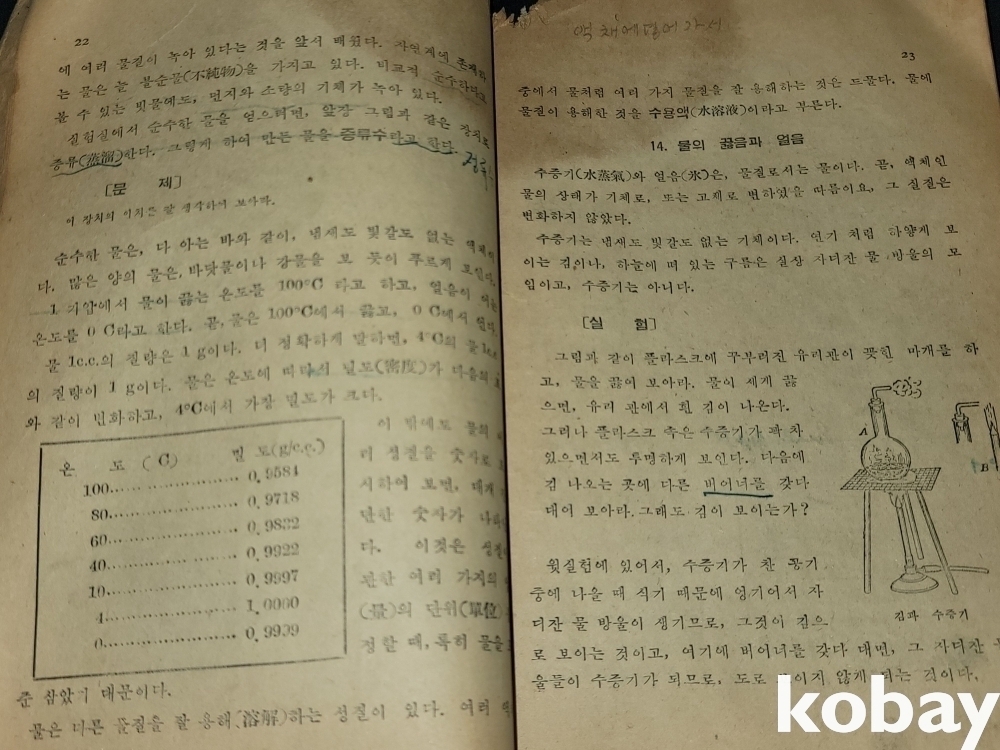 22
에 여러 물질이 녹아 있다는 것을 앞서 배웠다. 자연계에 존재하
는 물은 늘 불순물(不純物)을 가지고 있다. 비교적 순수하다고
볼 수 있는 빗물에도, 먼지와 소량의 기체가 녹아 있다.
실험실에서 순수한 물을 얻으려면, 앞장 그림과 같은 장치로
증류(蒸溜)한다. 그렇게 하여 만든 물을 증류수라고 한다.
[문 제]
이 장치의 이치를 잘 생각하여 보아라.
순수한 물은, 다 아는 바와 같이, 냄새도 빛갈도 없는 액체이
다. 많은 양의 물은, 바닷물이나 강물을 보듯이 푸르게 보인다.
1 기압에서 물이 끓는 온도를 100°C 라고 하고, 얼음이 어는
온도를 0 C라고 한다. 곧, 물은 100°C에서 끓고, 0 C에서 언다.
물 1c.c.의 질량은 1 g이다. 더 정확하게 말하면, 4°C의 물 1c.c.
의 질량이 1 g이다. 물은 온도에 따라서 밀도(密度)가 다음의 표
와 같이 변화하고, 4°C에서 가장 밀도가 크다.
온 도 ( C) 밀 도(g/c.c.)
100 0.9584
80 0.9718
60 0.9832
40 0.9922
10 0.9997
4 1.0000
0 0.9999
이 밖에도 물의
러 성질을 숫자로
시하여 보면, 대개
단한 숫자가 나타
다. 이것은 성질
관한 여러 가지의
(量)의 단위(單位)
정할 때, 특히 물을
준 삼았기 때문이다.
물은 다른 물질을 잘 용해(溶解)하는 성질이 있다. 여러 액
액체에열에가서
23
중에서 물처럼 여러 가지 물질을 잘 용해하는 것은 드물다. 물에
물질이 용해한 것을 수용액(水溶液)이라고 부른다.
14. 물의 끓음과 얼음
수증기(水蒸氣)와 얼음(氷)은, 물질로서는 물이다. 곧, 액체인
물의 상태가 기체로, 또는 고체로 변하였을 따름이요, 그 실질은
변화하지 않았다.
수증기는 냄새도 빛갈도 없는 기체이다. 연기 처럼 하얗게 보
이는 김이나, 하늘에 떠 있는 구름은 실상 자디잔 물 방울의 모
임이고, 수증기는 아니다.
[실 험]
그림과 같이 플라스크에 꾸부러진 유리관이 꽂힌 마개를 하
고, 물을 끓여 보아라. 물이 세게 끓
으면, 유리 관에서 흰 김이 나온다.
그러나 플라스크 속은 수증기가 꽉 차
있으면서도 투명하게 보인다. 다음에
김 나오는 곳에 다른 버어너를 갖다
대어 보아라. 그래도 김이 보이는가?
A
B
김과 수증기
윗실험에 있어서, 수증기가 찬 공기
중에 나올 때 식기 때문에 엉기어서 자
디잔 물 방울이 생기므로, 그것이 김으
로 보이는 것이고, 여기에 버어너를 갖다 대면, 그 자디잔
울들이 수증기가 되므로, 도로 보이지 않게 되는 것이다.
kobay